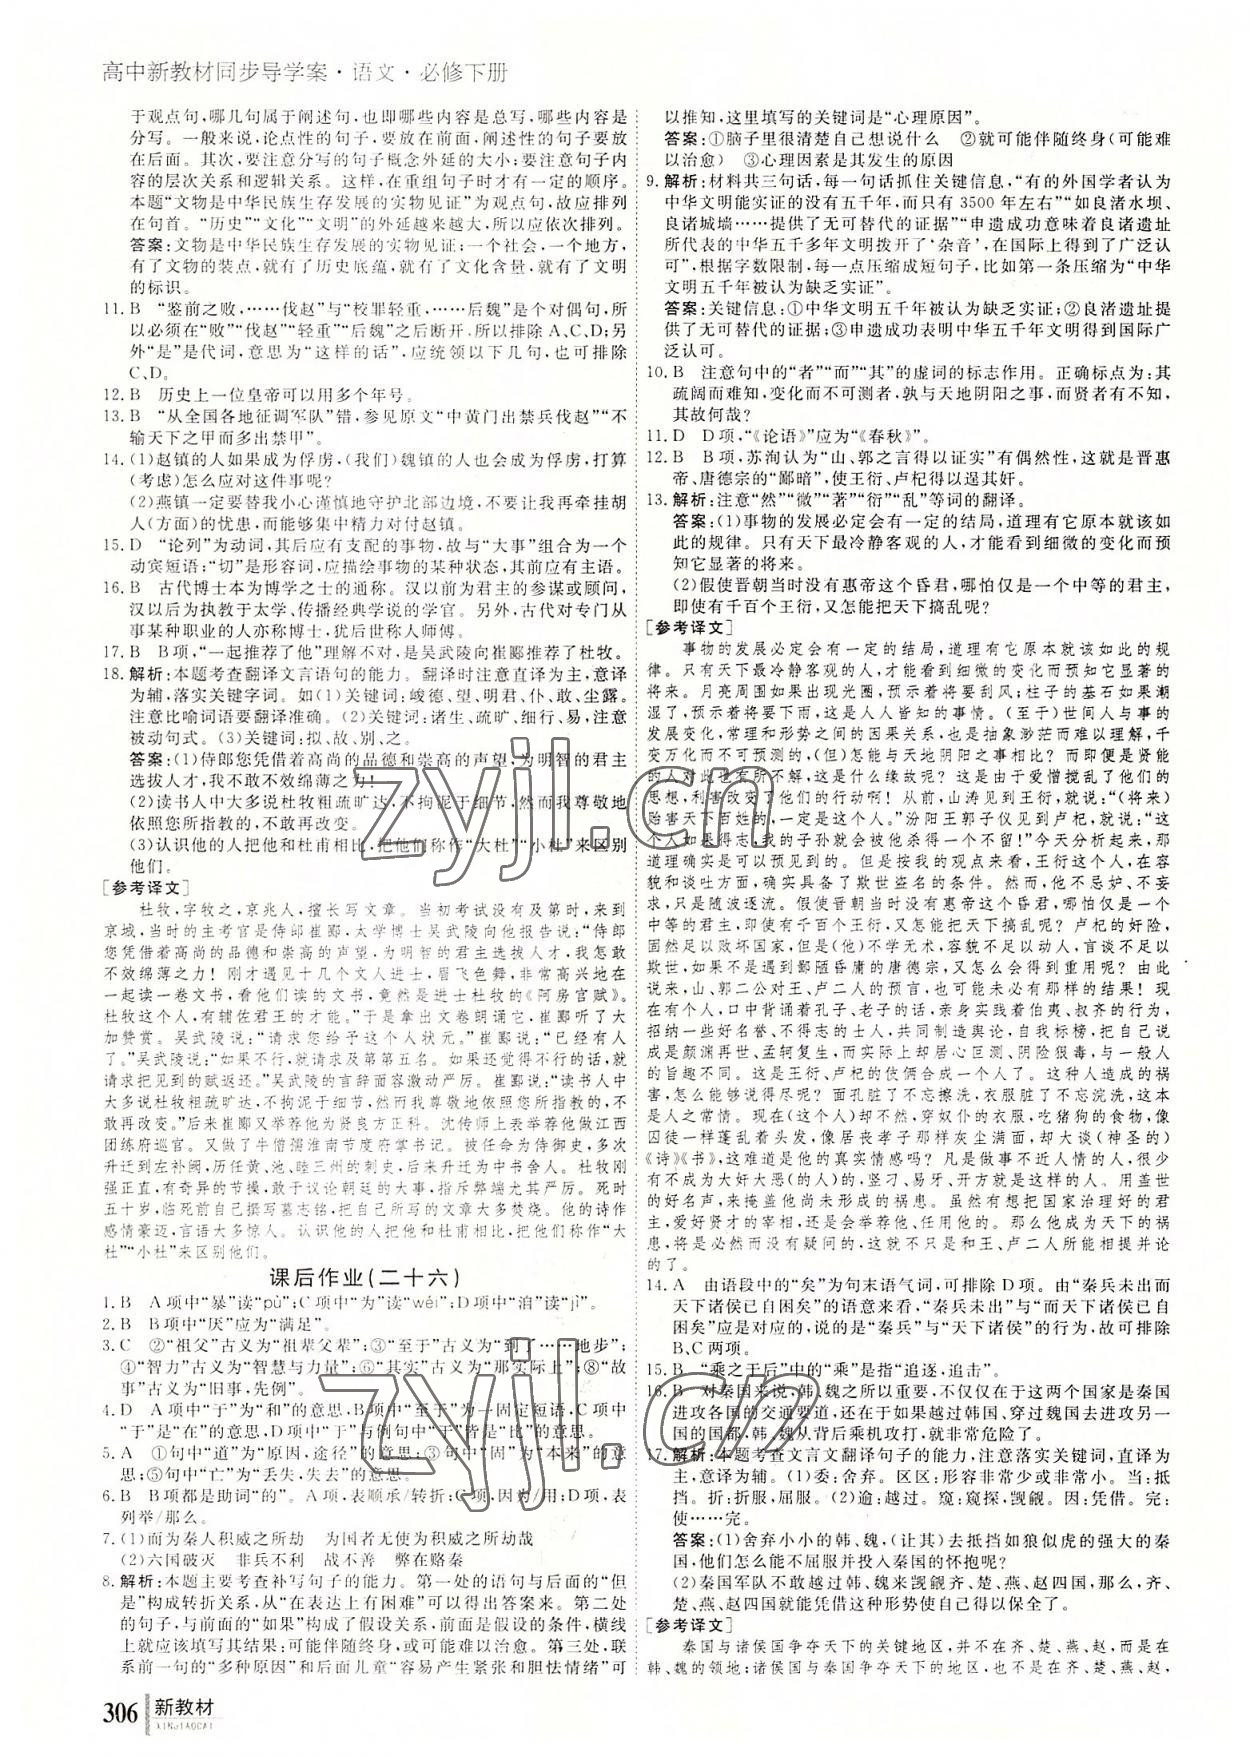 高中新教材同步导学案·语文·必修下册
于观点句,哪几句属于阐述句,也即哪些内容是总写,哪些内容是
分写。一般来说,论点性的句子,要放在前面,阐述性的句子要放
在后面。其次,要注意分写的句子概念外延的大小;要注意句子内
容的层次关系和逻辑关系。这样,在重组句子时才有一定的顺序。
本题“文物是中华民族生存发展的实物见证”为观点,故应排列
在句首。“历史”“文化”“文明”的外延越来越大,所以应依次排列。
答案:文物是中华民族生存发展的实物见证;一个社会,一个地方,
有了文物的装点,就有了历史底蕴,就有了文化含量,就有了文明
的标识。
11. B “鉴前之败,……伐赵”与“校罪轻重,……后魏”是个对偶句,所
以必须在“败”“伐赵”“轻重”“后魏”之后断开,所以排除A、C、D;另
外“是”是代词,意思为“这样的话”,应统领以下几句,也可排除
C、D。
12. B 历史上一位皇帝可以用多个年号。
13. B “从全国各地征调军队”错,参见原文“中黄门出禁兵伐赵”“不
输天下之甲而多出禁甲”。
14. (1)赵镇的人如果成为俘虏,(我们)魏镇的人也会成为俘虏,打算
(考虑)怎么应对这件事呢?
(2)燕镇一定要替我小心谨慎地守护北部边境,一定不要让我再牵挂胡
人(方面)的忧患,而能够集中精力对付赵镇。
15. D “论列”为动词,其后应有支配的事物,故与“大事”组合为一个
动宾短语;“切”是形容词,应描绘事物的某种状态,其前应有主语。
16. B 古代博士本为博学之士的通称。汉以前为君主的参谋或顾问,
汉以后为执教于太学、传播经典学说的学官。另外,古代对专门从
事某种职业的人亦称博士,犹后世称人师傅。
17. B B项,“一起推荐了他”理解不对,是吴武陵向崔郾推荐了杜牧。
18. 解析:本题考查翻译文言语句的能力。翻译时注意直译为主,意译
为辅,落实关键字词。如(1)关键词:峻德、望、明君、仆、敢、尘露。
注意比喻词语要翻译准确。(2)关键词:诸生、疏旷、细行、易,注意
被动句式。(3)关键词:拟、故、别、之。
答案:(1)侍郎您凭借着高尚的品德和崇高的声望,为明智的君主
选拔人才,我不敢不效绵薄之力!
(2)读书人中大多说杜牧粗疏旷达,不拘泥于细节,然而我尊敬地
依照您所指教的,不敢再改变。
(3)认识他的人把他和杜甫相比,把他们称作“大杜”“小杜”来区别
他们。
[参考译文]
杜牧,字牧之,京兆人,擅长写文章。当初考试没有及第时,来到
京城,当时的主考官是侍郎崔郾,太学博士吴武陵向他报告说:“侍郎
您凭借着高尚的品德和崇高的声望,为明智的君主选拔人才,我不敢
不效绵薄之力!刚才遇见十几个文人进士,眉飞色舞,非常高兴地在
一起读一卷文书,看他们读的文书,竟然是进士杜牧的《阿房宫赋》。
杜牧这个人,有辅佐君王的才能。”于是拿出文卷朗诵它,崔郾听了大
加赞赏。吴武陵说:“请求您给予这个人状元。”崔郾说:“已经有人
了。”吴武陵说:“如果不行,就请求及第第五名。如果还觉得不行的话,就
请求把见到的赋返还。”吴武陵的言辞面容激动严厉。崔郾说:“读书人中
大多说杜牧粗疏旷达,不拘泥于细节,然而我尊敬地依照您所指教的,不
敢再改变。”后来崔郾又举荐他为贤良方正科。沈传师上表举荐他做江西
团练府巡官。又做了牛僧孺淮南节度府掌书记。被任命为侍御史,多次
升迁到左补阙,历任黄、池、睦三州的刺史,后来升迁为中书舍人。杜牧刚
强正直,有奇异的节操,敢于议论朝廷的大事,指斥弊端尤其严厉。死时
五十岁,临死前自己撰写墓志铭,把自己所写的文章大多焚烧。他的诗作
感情豪迈,言语大多惊人。认识他的人把他和杜甫相比,把他们称作“大
杜”“小杜”来区别他们。
课后作业(二十六)
1. B A项中“暴”读“pù”;C项中“为”读“wéi”;D项中“洎”读“jì”。
2. B B项中“厌”应为“满足”。
3. C ②“祖父”古义为“祖辈父辈”;③“至于”古义为“到了……地步”;
④“智力”古义为“智慧与力量”;⑥“其实”古义为“那实际上”;⑧“故
事”古义为“旧事,先例”。
4. D A项中“于”为“和”的意思,B项中“至于”为一固定短语,C项中
“于”是“在”的意思,D项中“于”与例句中“于”皆是“比”的意思。
5. A ①句中“道”为“原因,途径”的意思;③句中“固”为“本来”的意
思;⑤句中“亡”为“丢失,失去”的意思。
6. B B项都是助词“的”。A项,表顺承/转折;C项,因为/用;D项,表
列举/那么。
7. (1)而为秦人积威之所劫 为国者无使为积威之所劫哉
(2)六国破灭 非兵不利 战不善 弊在赂秦
8. 解析:本题主要考查补写句子的能力。第一处的语句与后面的“但
是”构成转折关系,从“在表达上有困难”可以得出答案来。第二处
的句子,与前面的“如果”构成了假设关系,前面是假设的条件,横线
上就应该填写其结果;可能伴随终身,或可能难以治愈。第三处,联
系前一句的“多种原因”和后面儿童“容易产生紧张和胆怯情绪”可
以推知,这里填写的关键词是“心理原因”。
答案:①脑子里很清楚自己想说什么 ②就可能伴随终身(可能难
以治愈) ③心理因素是其发生的原因
9. 解析:材料共三句话,每一句话抓住关键信息,“有的外国学者认为
中华文明能实证的没有五千年,而只有3500年左右”“如良渚水坝、
良渚城墙……提供了无可替代的证据”“申遗成功意味着良渚遗址
所代表的中华五千多年文明拨开了‘杂音’,在国际上得到了广泛认
可”,根据字数限制,每一点压缩成短句子,比如第一条压缩为“中华
文明五千年被认为缺乏实证”。
答案:关键信息:①中华文明五千年被认为缺乏实证;②良渚遗址提
供了无可替代的证据;③申遗成功表明中华五千年文明得到国际广
泛认可。
10. B 注意句中的“者”“而”“其”的虚词的标志作用。正确标点为:其
疏阔而难知,变化而不可测者,孰与天地阴阳之事,而贤者有不知,
其故何哉?
11. D D项,“《论语》”应为“《春秋》”。
12. B B项,苏洵认为“山、郭之言得以证实”有偶然性,这是晋惠
帝、唐德宗的“鄙暗”,使王衍、卢杞得以逞其奸。
13. 解析:注意“然”“微”“著”“衍”“乱”等词的翻译。
答案:(1)事物的发展必定会有一定的结局,道理有它原本就该如
此的规律。只有天下最冷静客观的人,才能看到细微的变化而预
知它显著的将来。
(2)假使晋朝当时没有惠帝这个昏君,哪怕仅是一个中等的君主,
即使有千百个王衍,又怎能把天下搞乱呢?
[参考译文]
事物的发展必定会有一定的结局,道理有它原本就该如此的规
律。只有天下最冷静客观的人,才能看到细微的变化而预知它显著的
将来。月亮周围如果出现光圈,预示着将要刮风;柱子的基石如果潮
湿了,预示着将要下雨,这是人人皆知的事情。(至于)世间人与事的
发展变化,常理和形势之间的因果关系,也是抽象渺茫而难以理解,千
变万化而不可预测的,(但)怎能与天地阴阳之事相比?而即便是贤能
的人对此也有所不解,这是什么缘故呢?由于爱憎搅乱了他们的
思想,利害改变了他们的行动啊!从前,山涛见到王衍,就说:“(将来)
贻害天下百姓的,一定是这个人。”汾阳王郭子仪见到卢杞,就说:“这
个人如果得志,我的子孙就会被他杀得一个不留!”今天分析起来,那
道理确实是可以预知的。按我的观点来看,王衍这个人,在容
貌和谈吐方面,确实是具备了欺世盗名的条件。然而,他不忌妒、不妄
求,只是随波逐流。假使晋朝当时没有惠帝这个昏君,哪怕仅是一个
中等的君主,即使有千百个王衍,又怎能把天下搞乱呢?卢杞的奸险,
固然足以败坏国家,但是(他)不学无术,容貌不足以动人,言谈不足以
欺世,如果不是遇到鄙陋昏庸的唐德宗,又怎么会得到重用呢?由此
说来,山、郭二公对王、卢二人的预言,也未必有那样的结果!现在
有个人,口中背诵着孔子、老子的话,亲身实践着伯夷、叔齐的行为,
招纳一些好名誉、不得志的士人,共同制造舆论,自我标榜,把自己说
成是颜渊再世、孟轲复生,而实际上却居心叵测、阴险狠毒,与一般人
大不相同。这是让王衍、卢杞的伎俩合成一个人了。这种人造成的祸
害,怎么能够说得尽呢?面孔脏了不忘擦洗,衣服脏了不忘浣洗,这本
是人之常情。现在(这个人)却不然,穿奴仆的衣服,吃猪狗的食物,像
囚徒一样蓬乱着头发,像居丧孝子那样灰尘满面,却大谈(神圣的)
《诗》《书》,这难道是他的真实情感吗?凡是做事不近人情的人,很少
有不成为大奸大恶(的人)的,竖刁、易牙、开方就是这样的人。用盖世
的好名声,来掩盖他尚未形成的祸患。虽然有想把国家治理好的君
主,爱好贤才的宰相,还是会举荐他、任用他。那么他成为天下的祸
患,将是必然而没有疑问的,这就不只是和王、卢二人所能相提并论
的了。
14. A 由语段中的“矣”为句末语气词,可排除D项。由“秦兵未出而
天下诸侯已自困矣”的语意来看,“秦兵未出”与“而天下诸侯已自
困矣”应是对应的,说的是“秦兵”与“天下诸侯”的行为,故可排除
B、C两项。
15. B “乘之于后”中的“乘”是指“追逐,追击”。
16. B 对秦国来说,韩、魏之所以重要,不仅仅在于这两个国家是秦国
进攻各国的交通要道,还在于如果越过韩国、穿过魏国去进攻另一
国的国都,韩、魏从背后乘机攻打,就非常危险了。
17. 解析:本题考查文言文翻译句子的能力,注意落实关键词,直译为
主,意译为辅。(1)委:舍弃。区区:形容非常少或非常小。当:抵
挡。折:折服,屈服。(2)逾:越过。窥:窥探,觊觎。因:凭借。完:
使……完。
答案:(1)舍弃小小的韩、魏,(让其)去抵挡如狼似虎的强大的秦
国,他们怎么能不屈服并投入秦国的怀抱呢?
(2)秦国军队不敢越过韩、魏来觊觎齐、楚、燕、赵四国,那么,齐、
楚、燕、赵四国就能凭借这种形势使自己得以保全了。
[参考译文]
秦国与诸侯国争夺天下的关键地区,并不在齐、楚、燕、赵,而是在
韩、魏的领地;诸侯国与秦国争夺天下的地区,也不是在齐、楚、燕、赵,
306 新教材
XINJIAOCAI
zyjl.cn
zyjl.cn